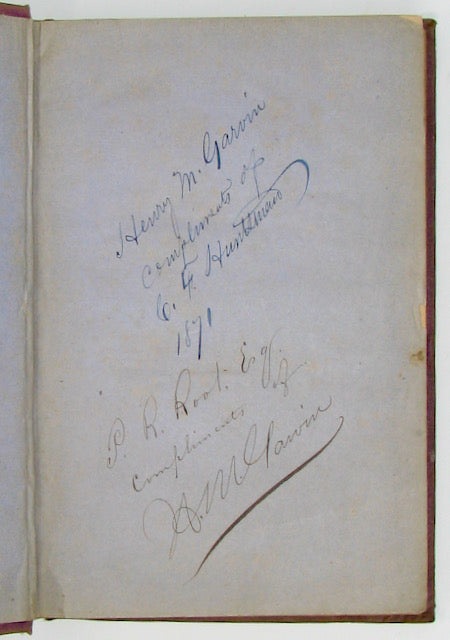 Henry M. Garvin
compliments of
C. F. Huntsman
1871
P. R. Root. Esq.
compliments of
H. M. Garvin